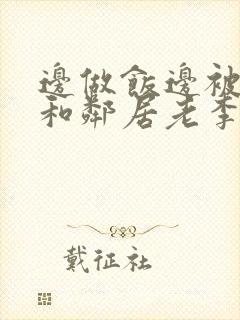 邊做飯邊被
和鄰居老李
戴征社